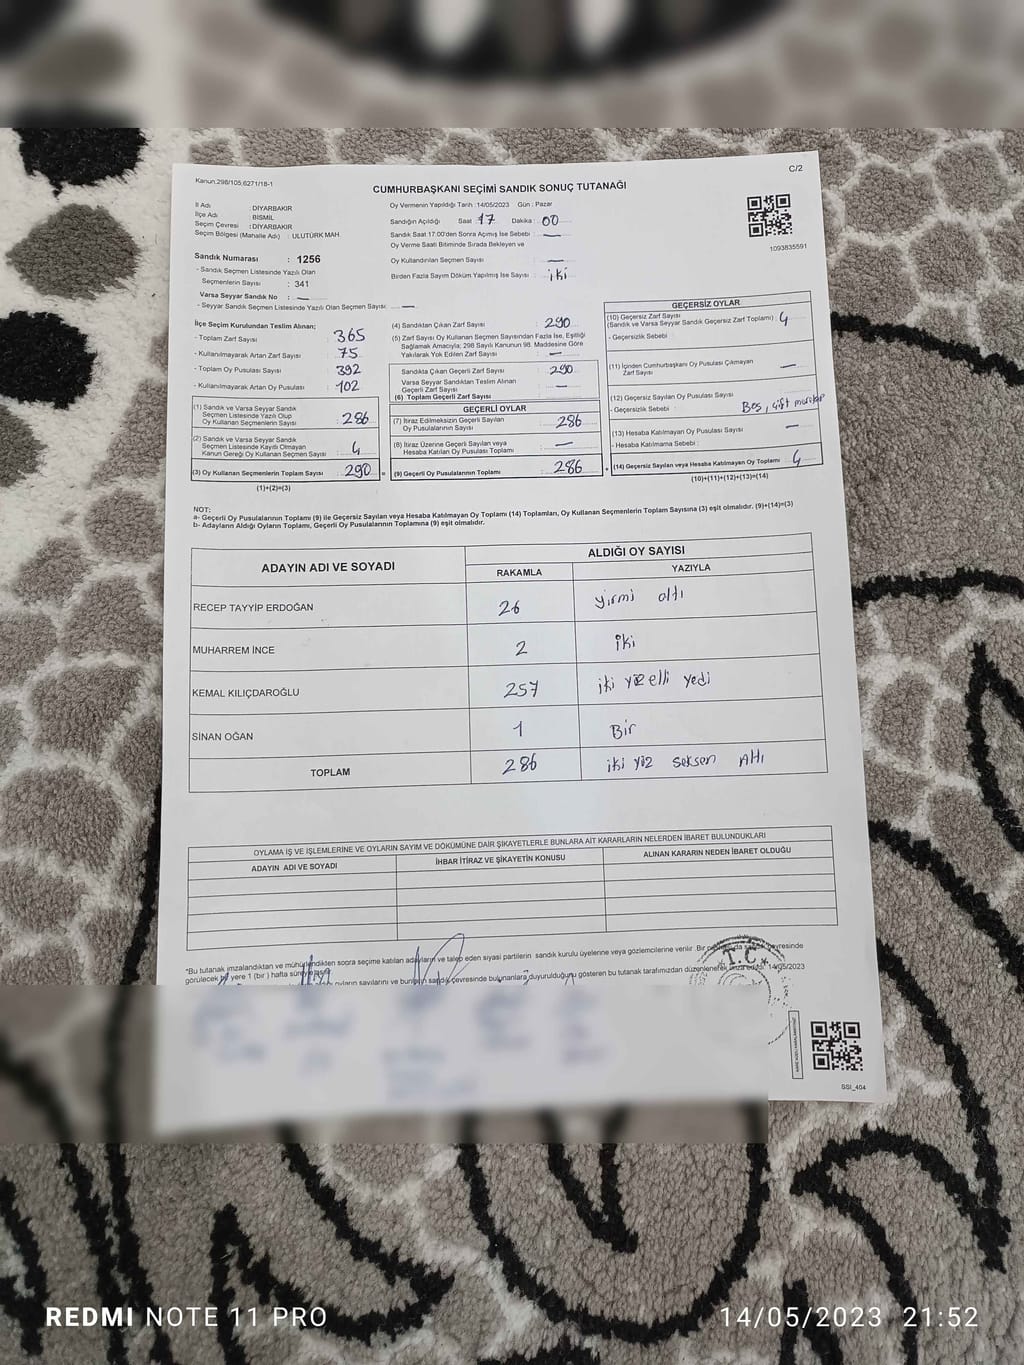 Kanun.298/105;6271/18-1
C/2
CUMHURBAŞKANI SEÇİMİ SANDIK SONUÇ TUTANAĞI
İl Adı : DİYARBAKIR
İlçe Adı : BİSMİL
Seçim Çevresi : DİYARBAKIR
Seçim Bölgesi (Mahalle Adı) : ULUTÜRK MAH.
Oy Vermenin Yapıldığı Tarih :14/05/2023 Gün : Pazar
Sandığın Açıldığı Saat 17 Dakika : 00
Sandık Saat 17:00'den Sonra Açımış İse Sebebi : —
Oy Verme Saati Bitiminde Sırada Bekleyen ve
Oy Kullandırılan Seçmen Sayısı : —
Birden Fazla Sayım Döküm Yapılmış İse Sayısı : iki
1093835591
Sandık Numarası : 1256
- Sandık Seçmen Listesinde Yazılı Olan
Seçmenlerin Sayısı : 341
Varsa Seyyar Sandık No : —
- Seyyar Sandık Seçmen Listesinde Yazılı Olan Seçmen Sayısı: —
İlçe Seçim Kurulundan Teslim Alınan;
- Toplam Zarf Sayısı : 365
- Kullanılmayarak Artan Zarf Sayısı : 75
- Toplam Oy Pusulası Sayısı : 392
- Kullanılmayarak Artan Oy Pusulası : 102
(1) Sandık ve Varsa Seyyar Sandık
Seçmen Listesinde Yazılı Olup
Oy Kullanan Seçmenlerin Sayısı : 286
(2) Sandık ve Varsa Seyyar Sandık
Seçmen Listesinde Kayıtlı Olmayan
Kanun Gereği Oy Kullanan Seçmenlerin Sayısı : 4
(3) Oy Kullanan Seçmenlerin Toplam Sayısı : 290 =
(1)+(2)=(3)
(4) Sandıktan Çıkan Zarf Sayısı : 290
(5) Zarf Sayısı Oy Kullanan Seçmen Sayısından Fazla İse, Eşitliği
Sağlamak Amacıyla; 298 Sayılı Kanunun 98. Maddesine Göre
Yakılarak Yok Edilen Zarf Sayısı : —
Sandıkta Çıkan Geçerli Zarf Sayısı : 290
Varsa Seyyar Sandıktan Teslim Alınan
Geçerli Zarf Sayısı : —
(6) Toplam Geçerli Zarf Sayısı
GEÇERLİ OYLAR
(7) İtiraz Edilmeksizin Geçerli Sayılan
Oy Pusulalarının Sayısı : 286
(8) İtiraz Üzerine Geçerli Sayılan veya
Hesaba Katılan Oy Pusulaları Toplamı : —
(9) Geçerli Oy Pusulalarının Toplamı : 286 +
GEÇERSİZ OYLAR
(10) Geçersiz Zarf Sayısı
(Sandık ve Varsa Seyyar Sandık Geçersiz Zarf Toplamı) : 4
- Geçersizlik Sebebi
(11) İçinden Cumhurbaşkanı Oy Pusulası Çıkmayan
Zarf Sayısı : —
(12) Geçersiz Sayılan Oy Pusulası Sayısı
- Geçersizlik Sebebi : Boş, çift
(13) Hesaba Katılmayan Oy Pusulası Sayısı : —
- Hesaba Katılmama Sebebi :
(14) Geçersiz Sayılan veya Hesaba Katılmayan Oy Toplamı : 4
(10)+(11)+(12)+(13)=(14)
NOT:
a- Geçerli Oy Pusulalarının Toplamı (9) ile Geçersiz Sayılan veya Hesaba Katılmayan Oy Toplamı (14) Toplamları, Oy Kullanan Seçmenlerin Toplam Sayısına (3) eşit olmalıdır. (9)+(14)=(3)
b- Adayların Aldığı Oyların Toplamı, Geçerli Oy Pusulalarının Toplamına (9) eşit olmalıdır.
ADAYIN ADI VE SOYADI
ALDIĞI OY SAYISI
RAKAMLA YAZIYLA
RECEP TAYYİP ERDOĞAN 26 yirmi altı
MUHARREM İNCE 2 iki
KEMAL KILIÇDAROĞLU 257 iki yüz elli yedi
SİNAN OĞAN 1 Bir
TOPLAM 286 iki yüz seksen Altı
OYLAMA İŞ VE İŞLEMLERİNE VE OYLARIN SAYIM VE DÖKÜMÜNE DAİR ŞİKAYETLERLE BUNLARA AİT KARARLARIN NELERDEN İBARET BULUNDUKLARI
ADAYIN ADI VE SOYADI İHBAR İTİRAZ VE ŞİKAYETİN KONUSU ALINAN KARARIN NEDEN İBARET OLDUĞU
*Bu tutanak imzalandıktan ve mühürlendikten sonra seçime katılan adayların ve talep eden siyasi partilerin sandık kurulu üyelerine veya gözlemcilerine verilir. Bir da sandık çevresinde
görülecek bir yere 1 (bir ) hafta süreyle asılır.
oyların sayılarını ve bunların sandık çevresinde bulunanlara duyurulduğunu gösteren bu tutanak tarafımızdan düzenlenerek imza edildi. 14/05/2023
T.C.
SSI_404
REDMI NOTE 11 PRO
14/05/2023 21:52